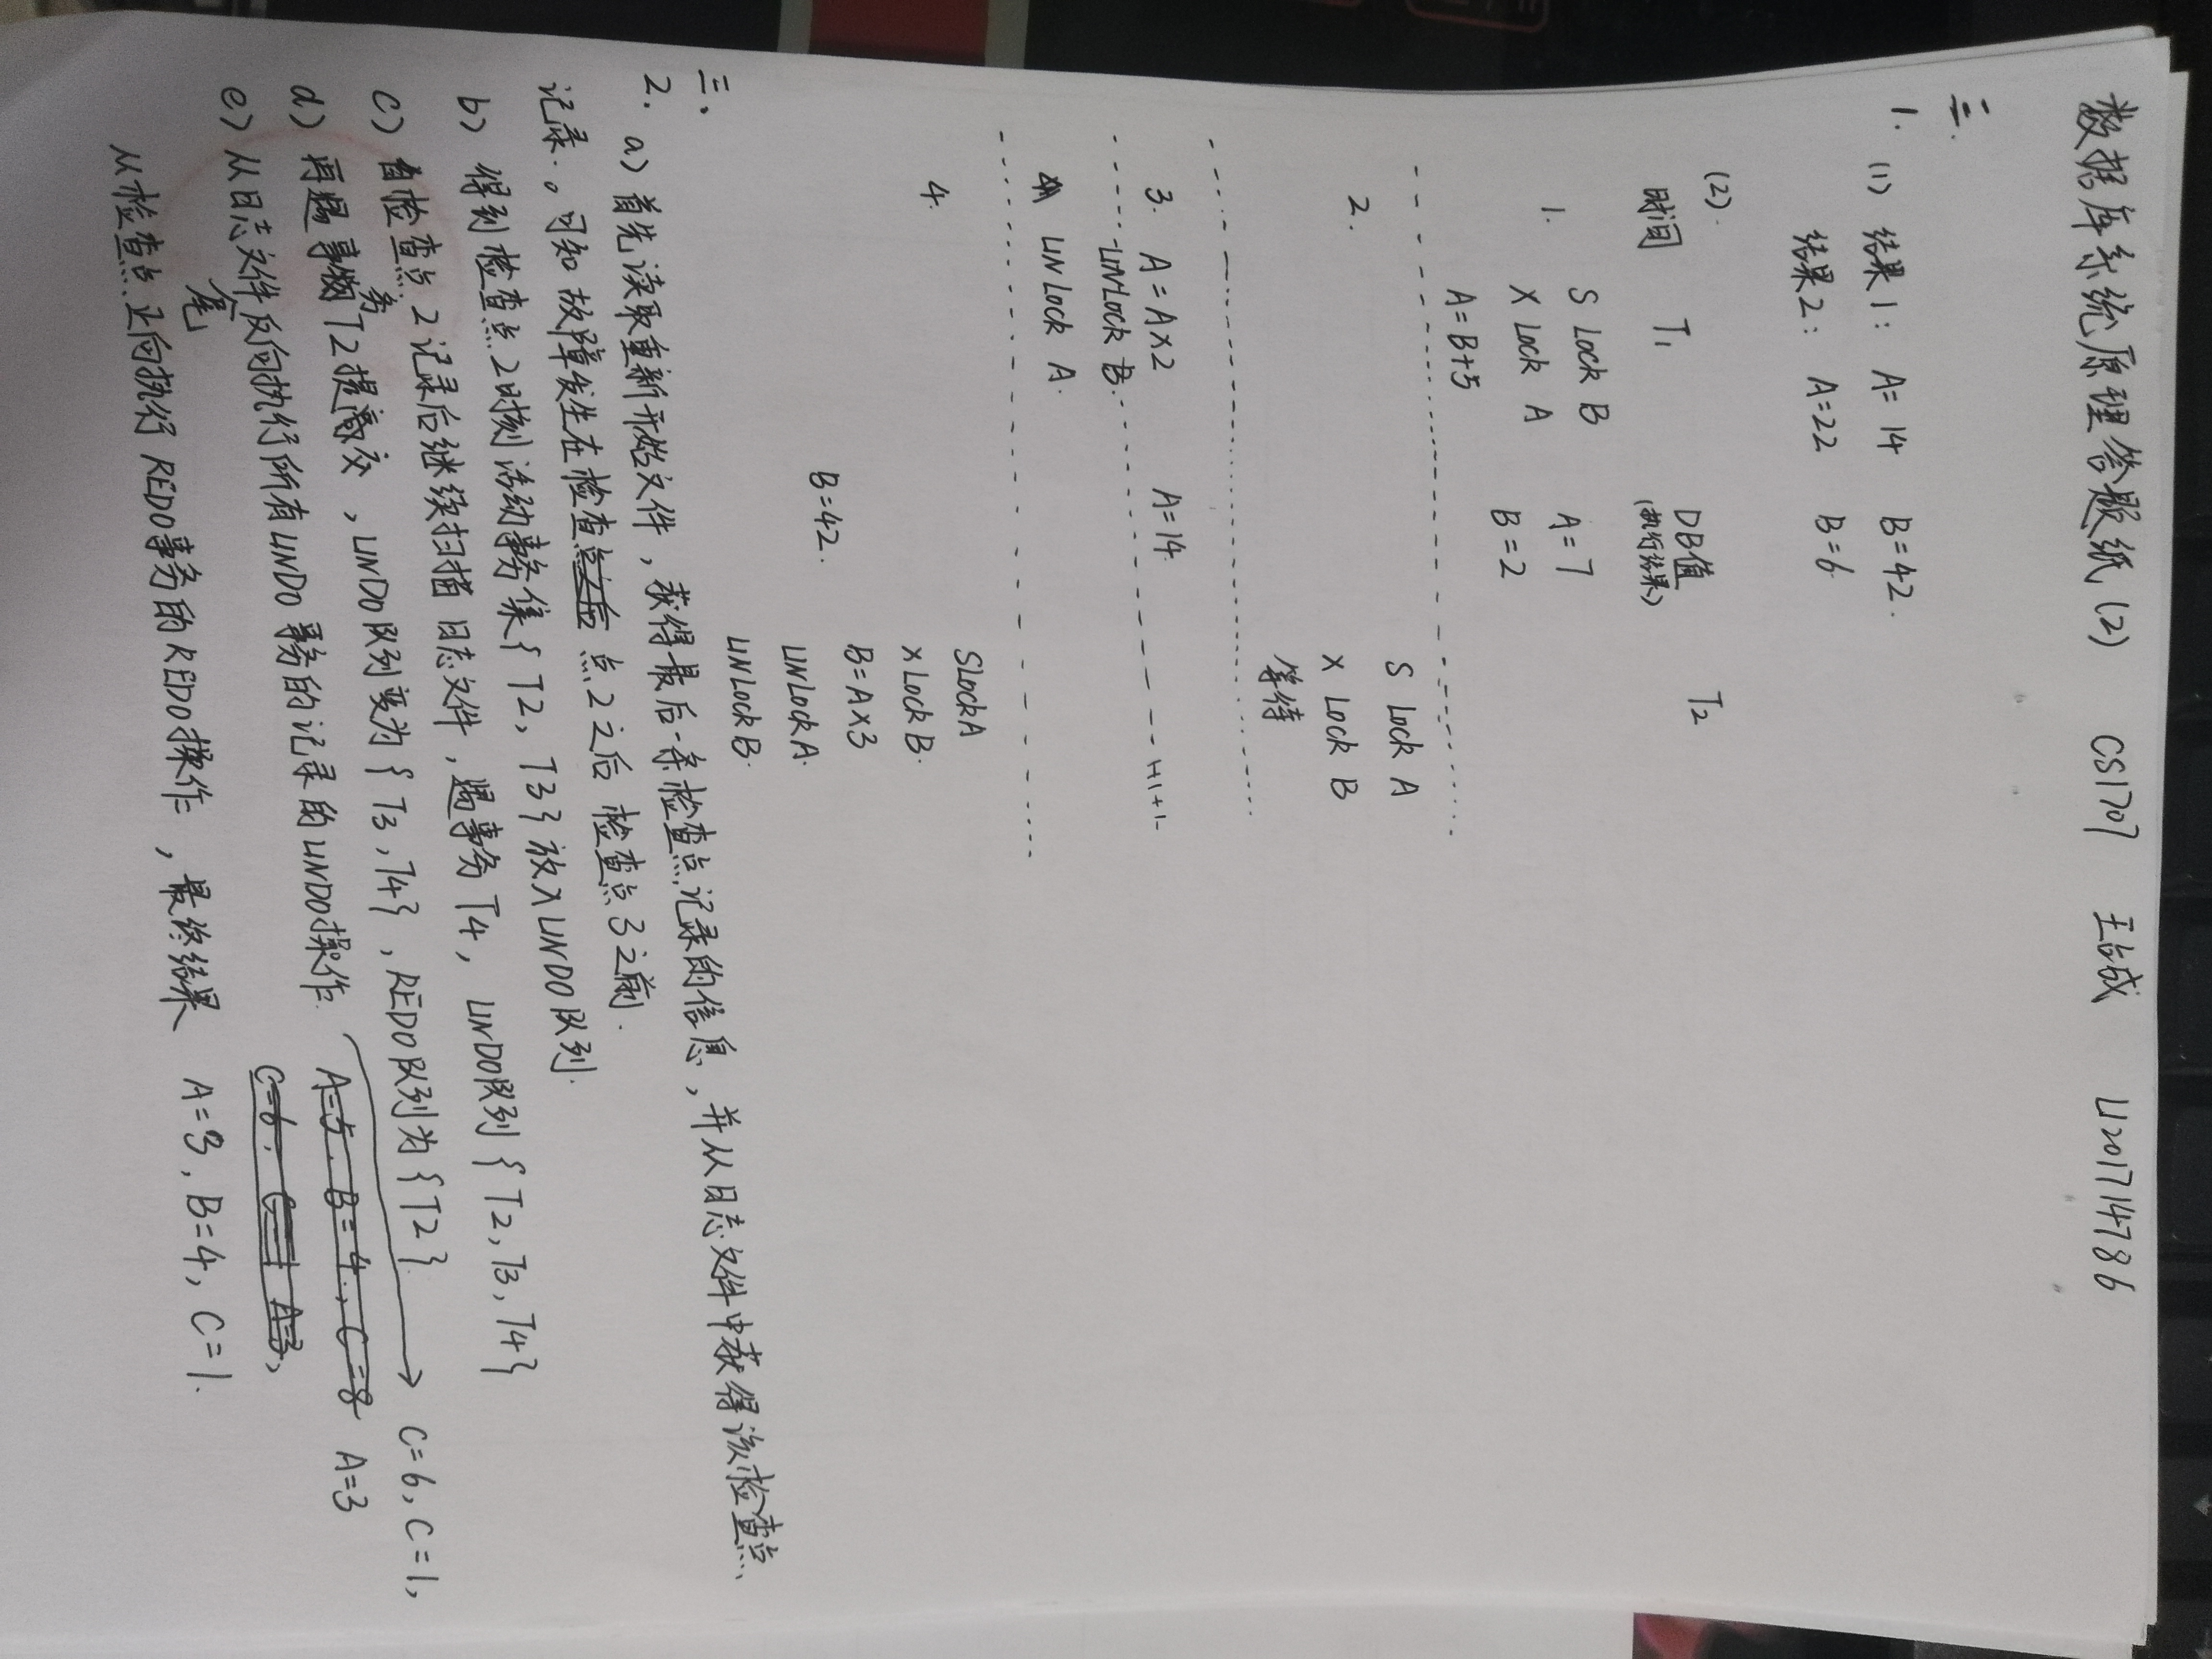 数据库系统原理答题纸(2) CS1707 王占成 U201714786
二.
1. (1) 结果1: A=14 B=42.
结果2: A=22 B=6.
(2).
时间 T1 DB值 T2
(执行结果)
1. S Lock B A=7
X Lock A B=2
A=B+5
2. S Lock A
X Lock B
等待
3. A=A×2 A=14.
UNLock B.
UNLock A.
4. SLockA
XLockB.
B=42. B=A×3
UNLockA.
UNLockB.
三、
2. a) 首先读取重新开始文件,获得最后一条检查点记录的信息,并从日志文件中获得该检查点
记录.。可知故障发生在检查点2之后 检查点3之前.
b) 得到检查点2时刻活动事务集{T2,T3}放入UNDO队列.
c) 自检查点2记录后继续扫描日志文件,遇事务T4, UNDO队列{T2,T3,T4}
d) 再遇事务T2提交,UNDO队列变为{T3,T4},REDO队列为{T2}.
e) 从日志文件尾反向执行所有UNDO事务的记录的UNDO操作. C=6,C=1,
A=5. B=4, C=8 A=3
C=6,
从检查点正向执行REDO事务的REDO操作,最终结果 A=3,B=4,C=1.